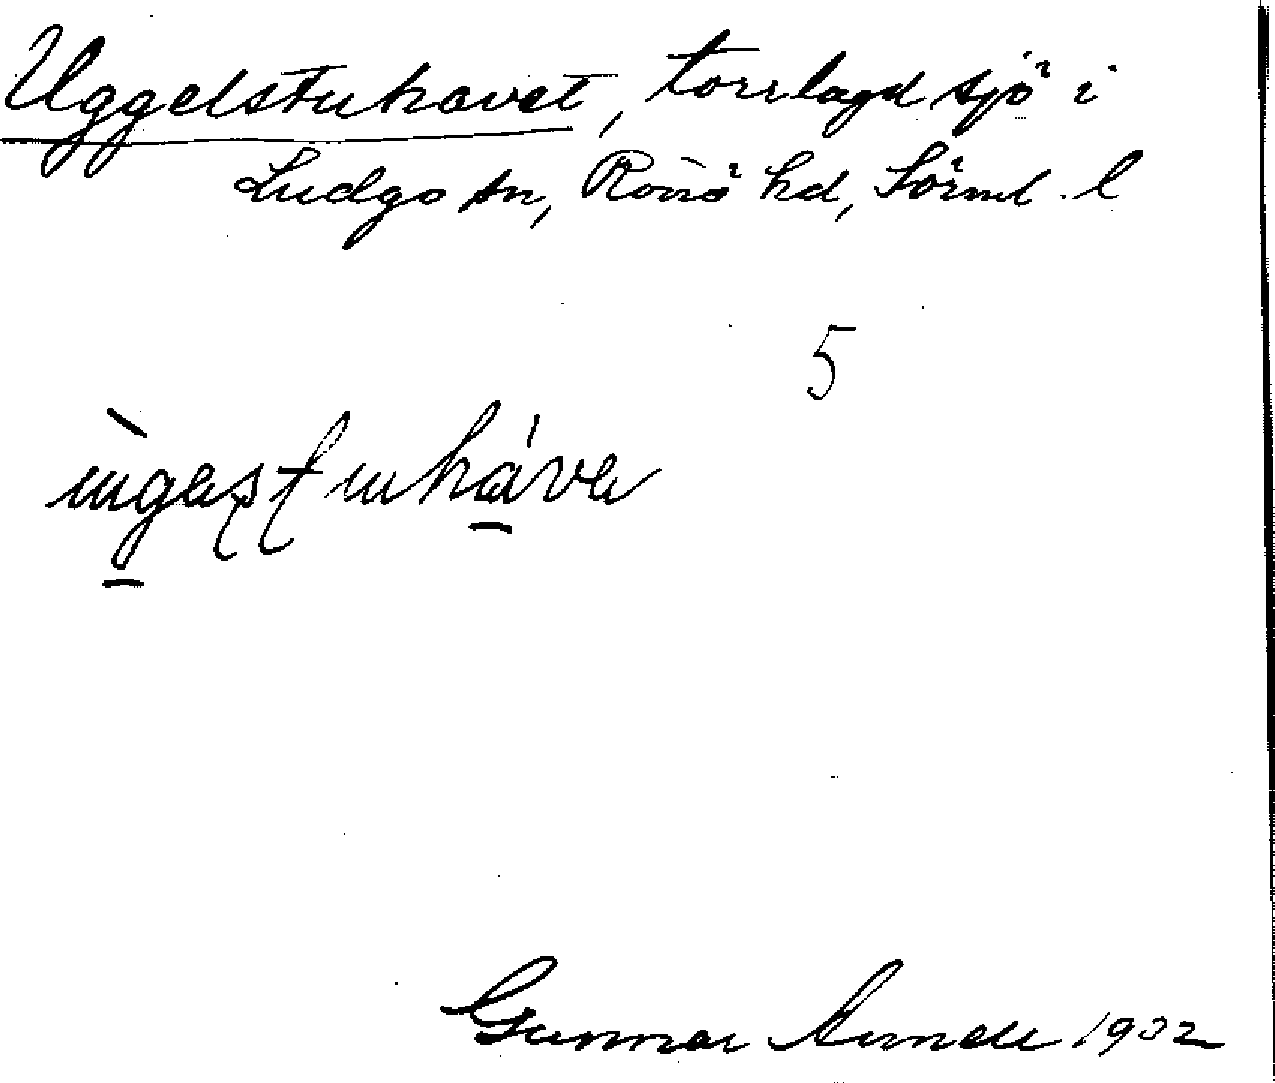 Uggelstuhavet, torrlagd sjö i
Ludgo sn, Rönö hd, Sörml. l
5
ùgastuháva
Gunnar Arnell 1932